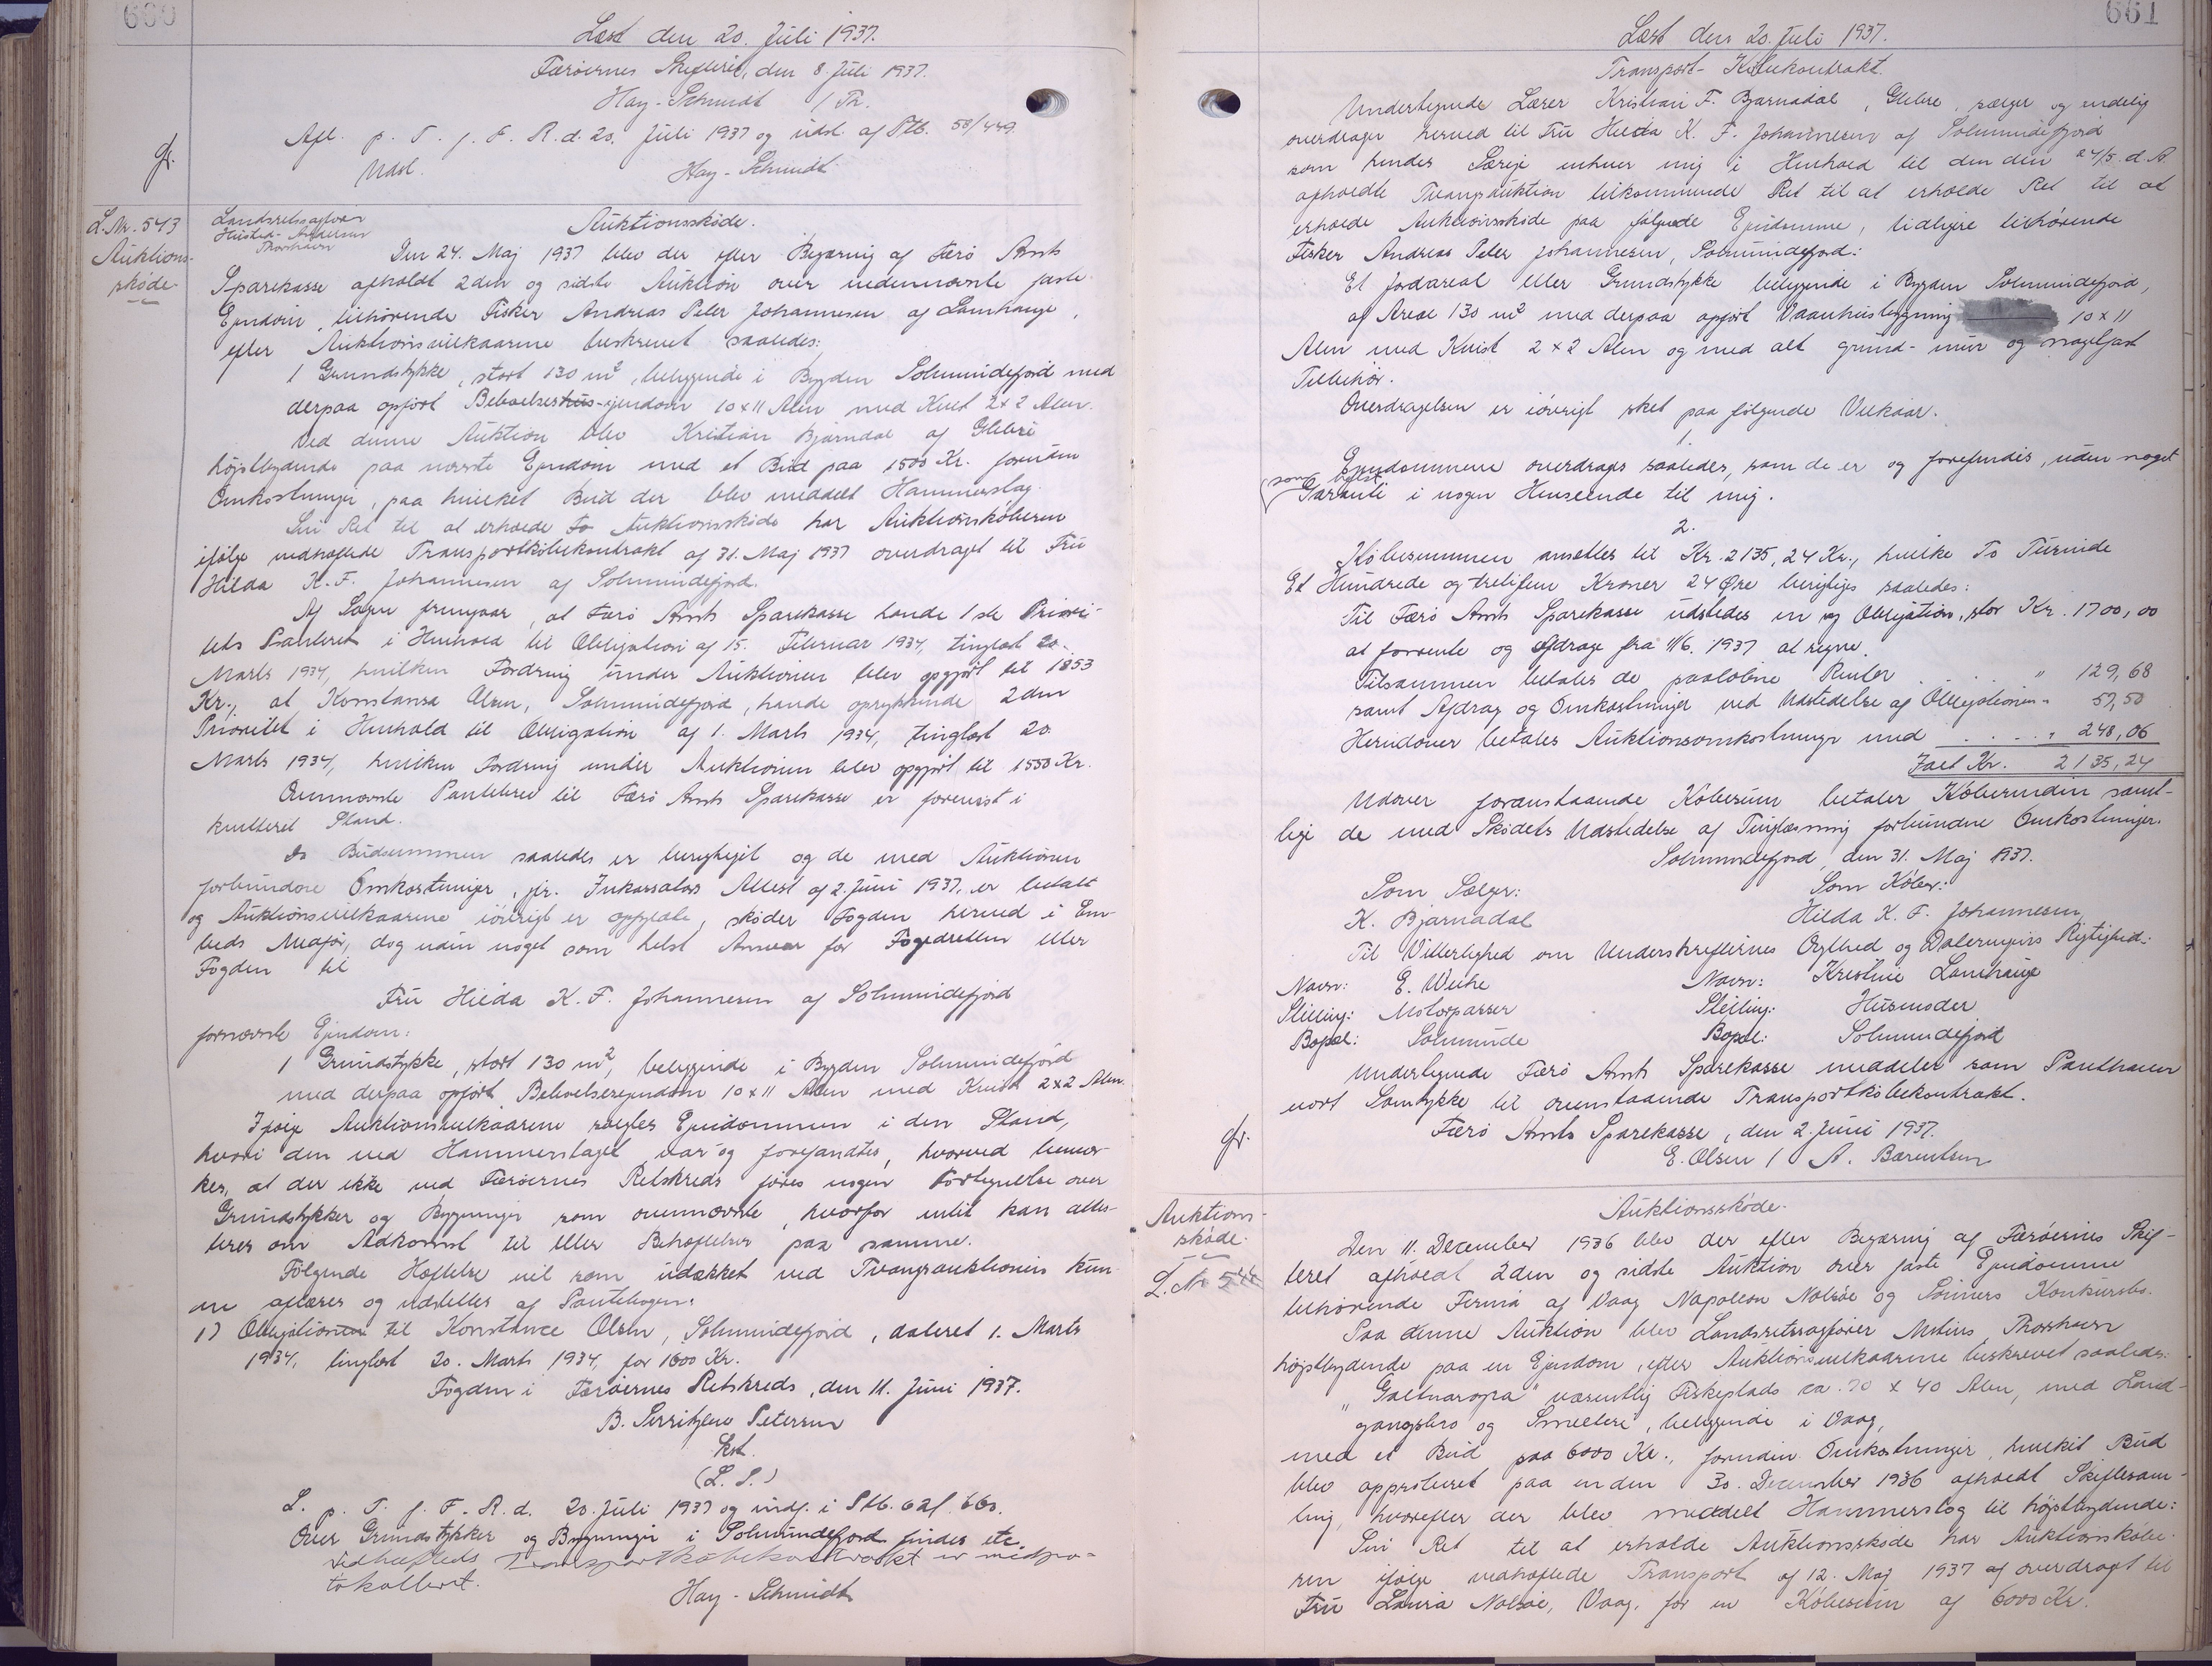 660
Læst den 20. Juli 1937.
Færøernes Skifteret, den 8. Juli 1937.
Hay-Schmidt / Th.
Afl. p. T. f. F. R. d. 20. Juli 1937 og udsl. af Ptb. 58/449.
Udsl. Hay-Schmidt
gr.
L. Nr. 543
Auktions-
skøde
Landsretssagfører
Husted-Andersen
Thorshavn
Auktionsskøde.
Den 24. Maj 1937 blev der efter Begæring af Færø Amts
Sparekasse afholdt 2den og sidste Auktion over nedennævnte faste
Ejendom, tilhørende Fisker Andreas Peter Johannesen af Lamhauge,
efter Auktionsvilkaarene beskrevet saaledes:
1 Grundstykke, stort 130 m², beliggende i Bygden Solmundefjord med
derpaa opført Beboelseshus-ejendom 10x11 Alen med Kvist 2x2 Alen.
Ved denne Auktion blev Kristian Bjarnadal af Glibre
højstbydende paa nævnte Ejendom med et Bud paa 1500 Kr. foruden
Omkostninger, paa hvilket Bud der blev meddelt Hammerslag.
Sin Ret til at erholde to Auktionsskøde har Auktionskøberen
ifølge vedhæftede Transportkøbekontrakt af 31. Maj 1937 overdraget til Fru
Hilda K. F. Johannesen af Solmundefjord.
Af Sagen fremgaar, at Færø Amts Sparekasse havde 1ste Priori-
tets Panteret i Henhold til Obligation af 15. Februar 1934, tinglæst 20.
Marts 1934, hvilken Fordring under Auktionen blev opgjort til 1853
Kr., at Konstansa Olsen, Solmundefjord, havde oprykkende 2den
Prioritet i Henhold til Obligation af 1. Marts 1934, tinglæst 20.
Marts 1934, hvilken Fordring under Auktionen blev opgjort til 1550 Kr.
Ovennævnte Pantebrev til Færø Amts Sparekasse er forevist i
kvitteret Stand.
Da Budsummen saaledes er berigtiget og de med Auktionen
forbundne Omkostninger, jfr. Inkassators Attest af 2. Juni 1937, er betalt
og Auktionsvilkaarene iøvrigt er opfyldte, skøder Fogden herved i Em-
beds Medfør, dog uden noget som helst Ansvar for Fogedretten eller
Fogden til
Fru Hilda K. F. Johannesen af Solmundefjord
fornævnte Ejendom:
1 Grundstykke, stort 130 m², beliggende i Bygden Solmundefjord
med derpaa opført Beboelsesejendom 10x11 Alen med Kvist 2x2 Alen.
Ifølge Auktionsvilkaarene sælges Ejendommen i den Stand,
hvori den ved Hammerslaget var og forefandtes, hvorved bemær-
kes, at der ikke ved Færøernes Retskreds føres nogen Fortegnelse over
Grundstykker og Bygninger som ovennævnte, hvorfor intet kan attes-
teres om Adkomst til eller Behæftelser paa samme.
Følgende Hæftelse vil som udækket ved Tvangsauktionen kun-
ne aflæses og udslettes af Pantebogen:
1) Obligationen til Konstance Olsen, Solmundefjord, dateret 1. Marts
1934, tinglæst 20. Marts 1934, for 1600 Kr.
Fogden i Færøernes Retskreds, den 11. Juni 1937.
B. Serritzlew Petersen
kst.
(L. S.)
L. p. T. f. F. R. d. 20. Juli 1937 og indf. i Ptb. 62 f. 660.
Over Grundstykker og Bygninger i Solmundefjord findes etc.
Vedhæftede Transportkøbekontrakt er medpro-
tokolleret.
Hay-Schmidt
661
Læst den 20. Juli 1937.
Transport-Købekontrakt.
Undertegnede Lærer Kristian F. Bjarnadal, Glibre, sælger og endelig
overdrager herved til Fru Hilda K. F. Johannesen af Solmundefjord
som hendes Særeje enhver mig i Henhold til den den 24/5. d. A.
afholdte Tvangsauktion tilkommende Ret til at erholde Ret til at
erholde Auktionsskøde paa følgende Ejendomme, tidligere tilhørende
Fisker Andreas Peter Johannesen, Solmundefjord:
Et Jordareal eller Grundstykke beliggende i Bygden Solmundefjord,
af Areal 130 m² med derpaa opført Vaanhusbygning 10 x 11
Alen med Kvist 2 x 2 Alen og med alt grund- mur og nagelfast
Tilbehør.
Overdragelsen er iøvrigt sket paa følgende Vilkaar.
1.
Ejendommene overdrages saaledes, som de er og forefindes, uden noget
som helst
Garanti i nogen Henseende til mig.
2.
Købesummen ansættes til Kr. 2135,24 Kr., hvilke To Tusinde
Et Hundrede og tretifem Kroner 24 Øre berigtiges saaledes:
Til Færø Amts Sparekasse udstedes en ny Obligation, stor Kr. 1700,00
at forrente og afdrage fra 11/6. 1937 at regne.
Tilsammen betales de paaløbne Renter . . " 129,68
samt Afdrag og Omkostninger ved Udstedelse af Obligationen " 57,50
Herudover betales Auktionsomkostninger med . . . . " 248,06
Ialt Kr. 2135,24
Udover foranstaaende Købesum betaler Køberinden samt-
lige de med Skødets Udstedelse af Tinglæsning forbundne Omkostninger.
Solmundefjord, den 31. Maj 1937.
Som Sælger: Som Køber:
K. Bjarnadal Hilda K. F. Johannesen
Til Vitterlighed om Underskrifternes Ægthed og Dateringens Rigtighed:
Navn: E. Weihe Navn: Kristine Lamhauge
Stilling: Motorpasser Stilling: Husmoder
Bopæl: Solmunde Bopæl: Solmundefjord
Undertegnede Færø Amts Sparekasse meddeler som Panthaver
vort Samtykke til ovenstaaende Transportkøbekontrakt.
Færø Amts Sparekasse, den 2. Juni 1937.
E. Olsen / A. Bærentsen
gr.
Auktions-
skøde.
L. Nr. 544
Auktionsskøde.
Den 11. December 1936 blev der efter Begæring af Færøernes Skif-
teret afholdt 2den og sidste Auktion over faste Ejendomme
tilhørende Firma af Vaag Napoleon Nolsøe og Sønners Konkursbo.
Paa denne Auktion blev Landsretssagfører Mitius, Thorshavn
højstbydende paa en Ejendom, efter Auktionsvilkaarene beskrevet saaledes:
"Galtnaropa" væsentlig Fiskeplads ca. 70 x 40 Alen, med Land-
gangsbro og Smelteri, beliggende i Vaag,
med et Bud paa 6000 Kr., foruden Omkostninger, hvilket Bud
blev approberet paa en den 30. December 1936 afholdt Skiftesam-
ling, hvorefter der blev meddelt Hammerslag til højstbydende:
Sin Ret til at erholde Auktionsskøde har Auktionskøbe-
ren ifølge vedhæftede Transport af 12. Maj 1937 af overdraget til
Fru Laura Nolsøe, Vaag, for en Købesum af 6000 Kr.